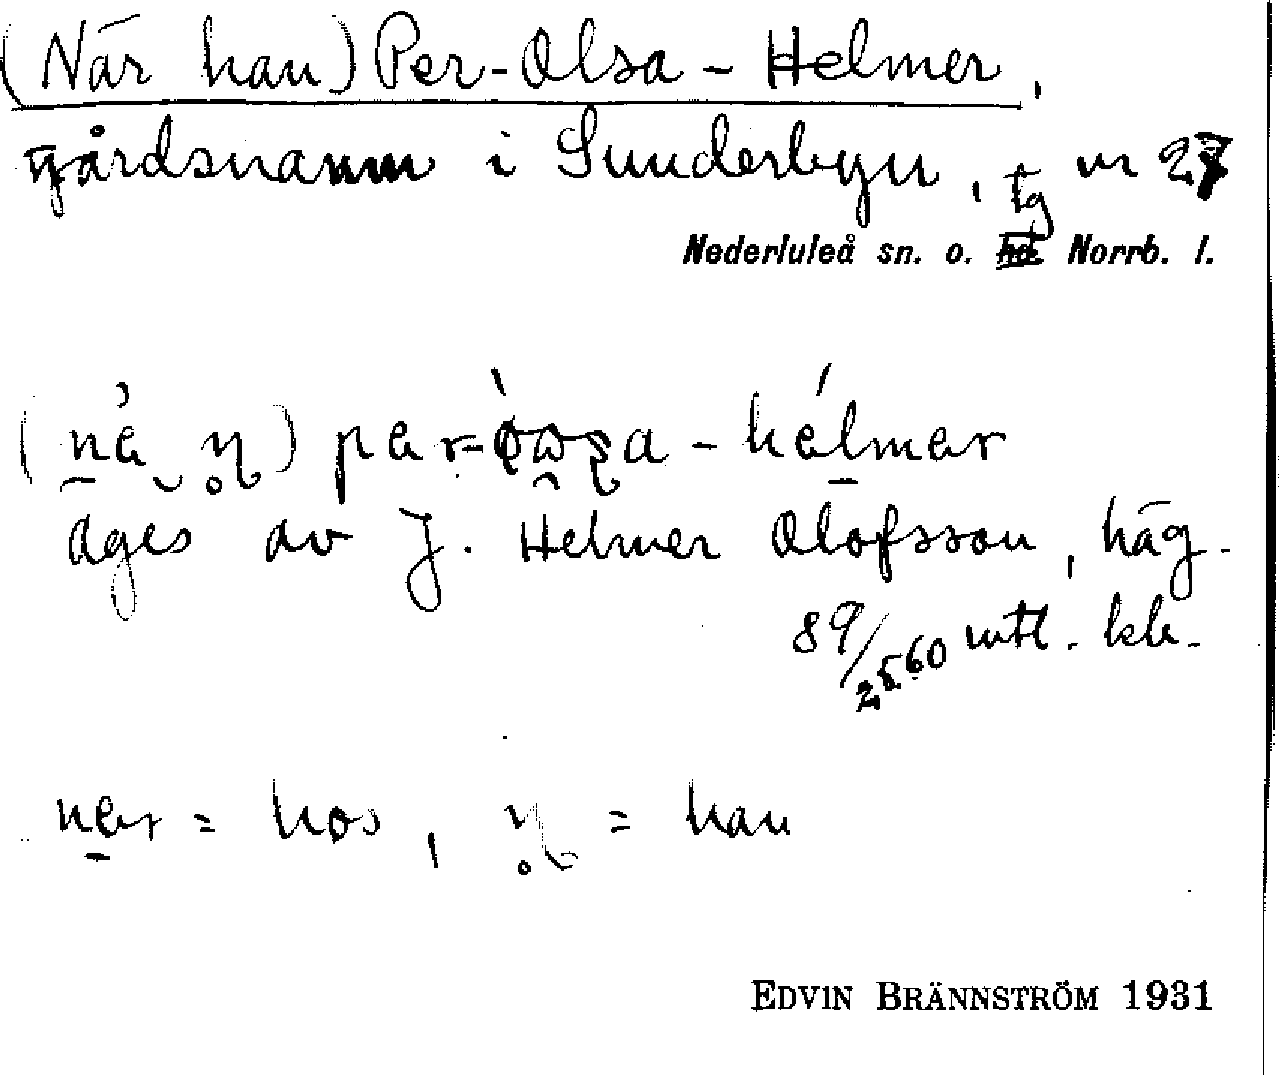 (När han) Per-Olsa-Helmer,
gårdsnamn i Sunderbyn, nr 27
Nederluleå sn. o. tg Norrb. l.
äges av J. Helmer Olofsson, häg.
89/2560 mtl. kr.
ner = hos, = han
EDVIN BRÄNNSTRÖM 1931